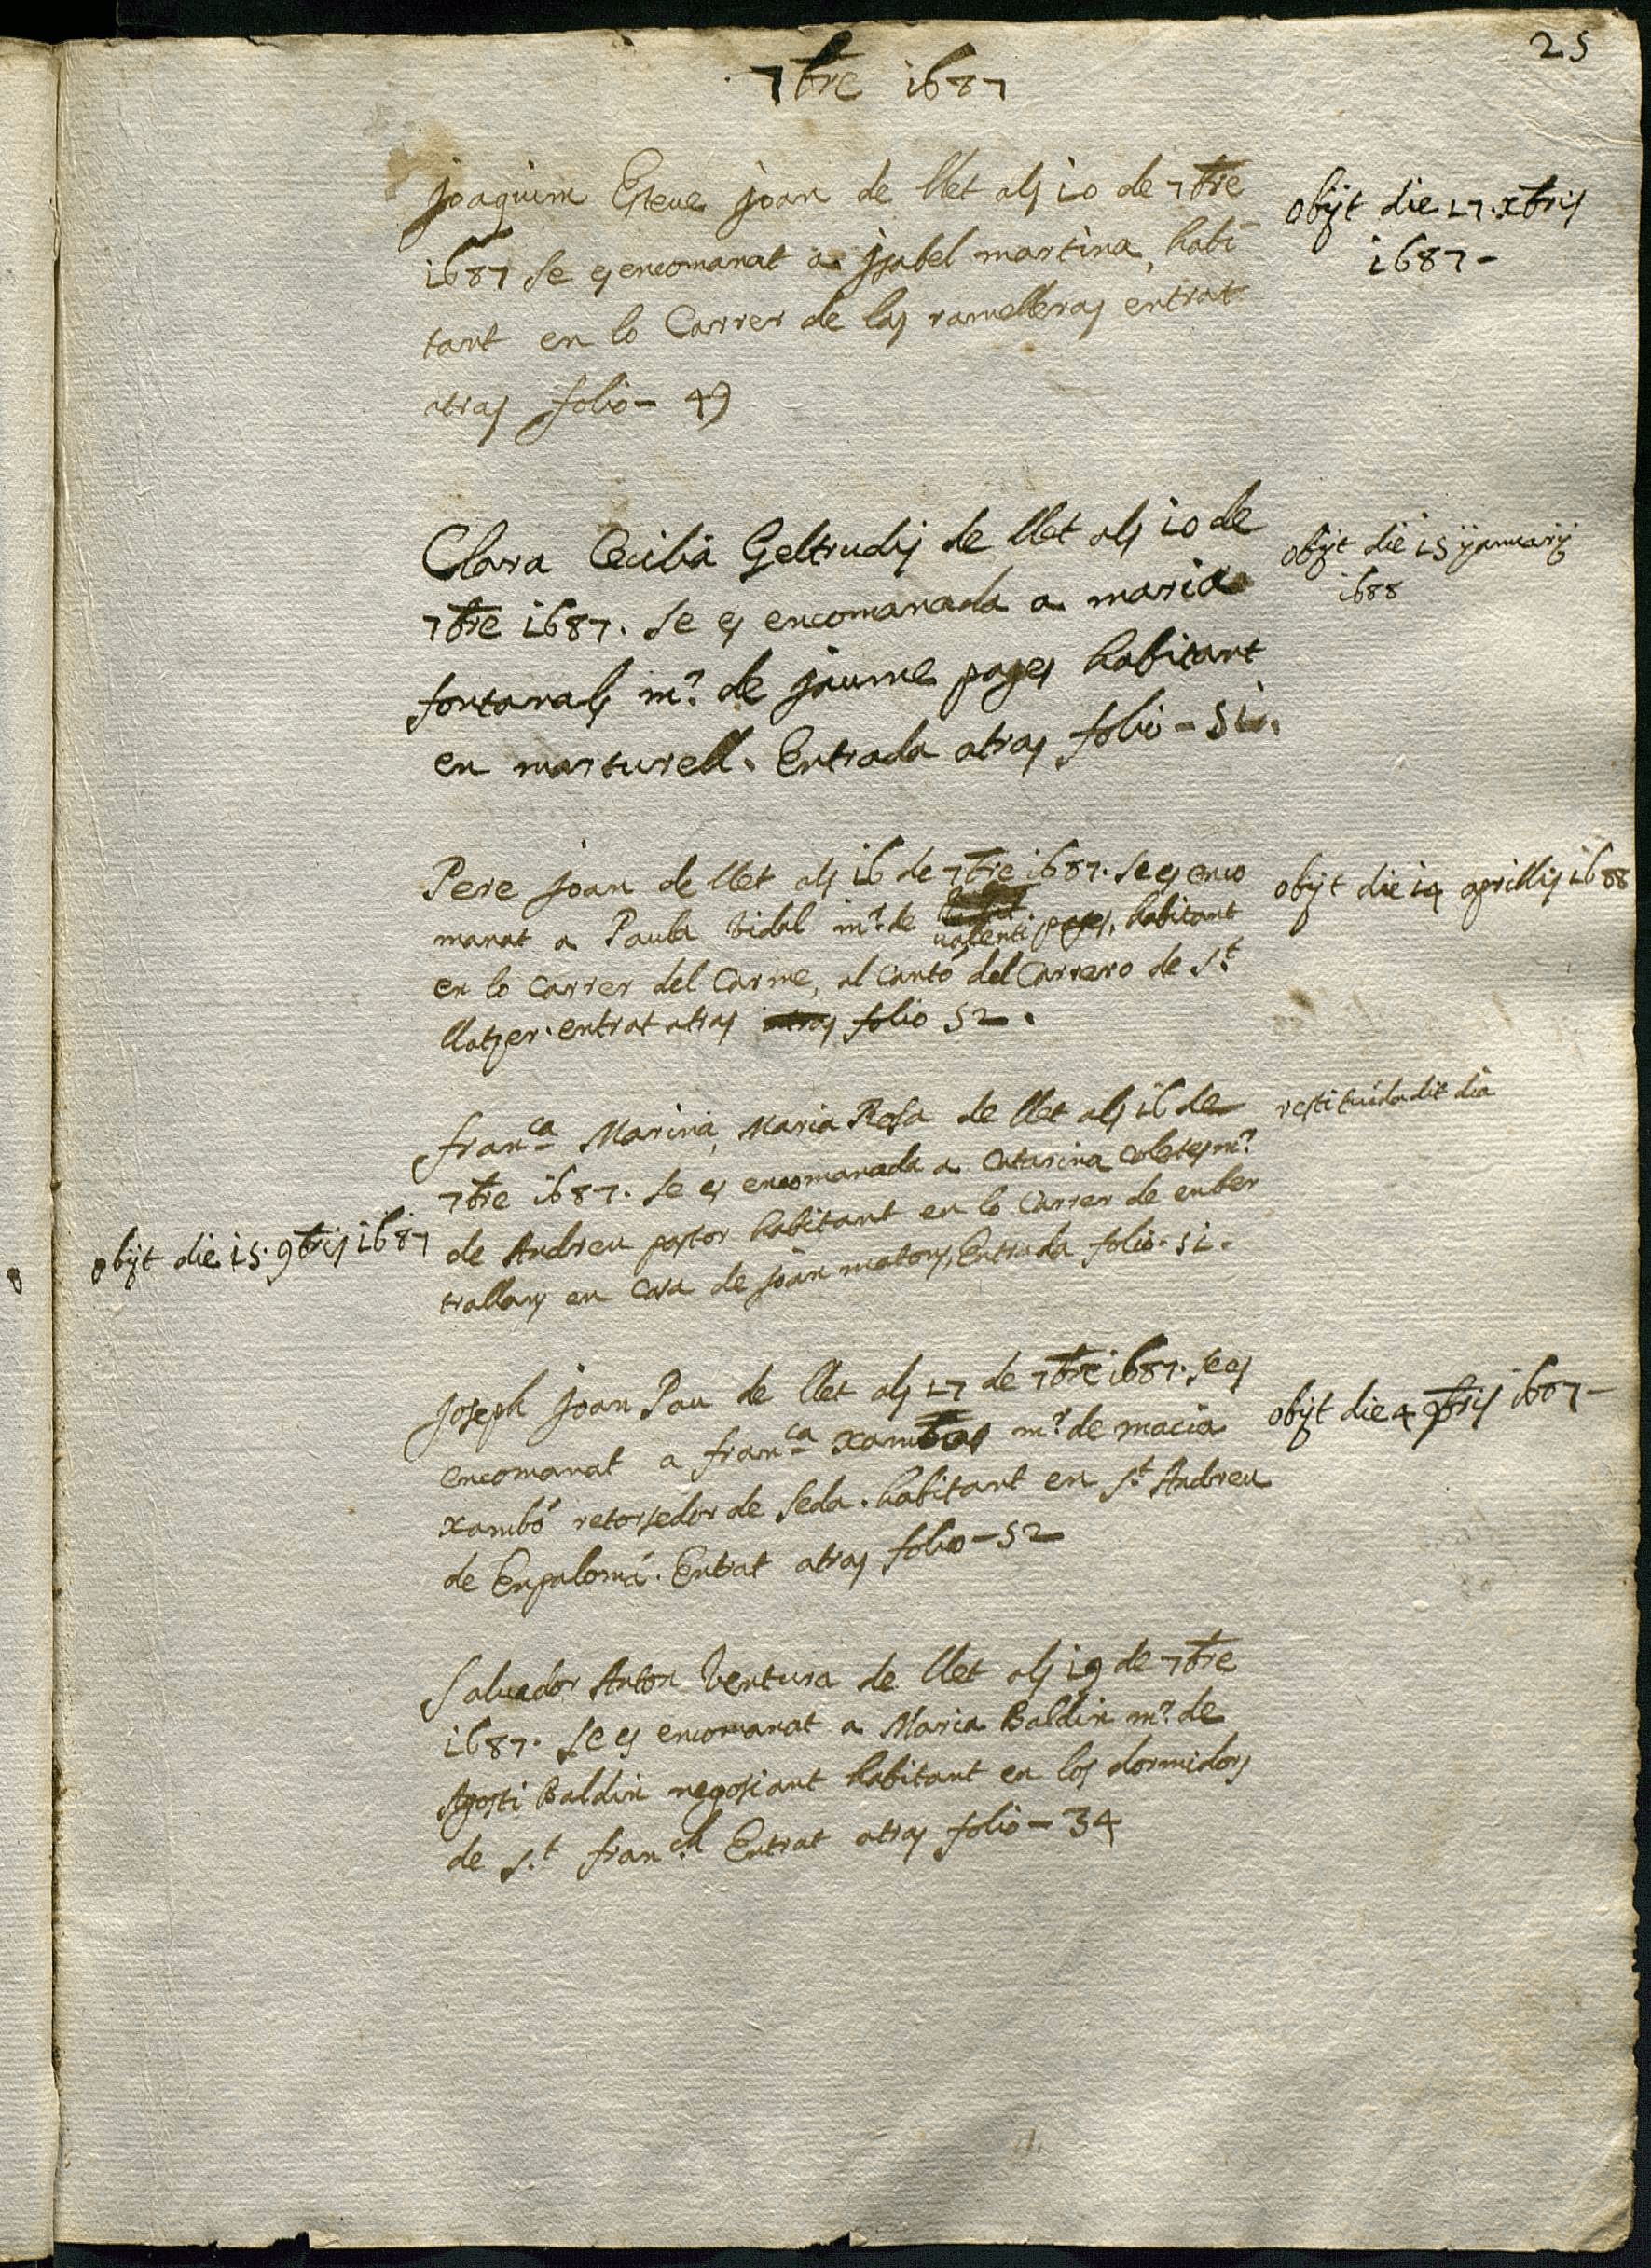 25
7bre 1687
Joaquim Esteve Joan de llet als 10 de 7bre
1687 se es encomanat a Isabel martina, habi
tant en lo Carrer de las ramelleras entrat
atras folio - 49
obijt die 17 xbris
1687 -
Clara Cecilia Geltrudis de llet als 10 de
7bre 1687. se es encomanada a maria
fontanals mr. de jaume pages habitant
en marturell. Entrada atras folio - 51.
obijt die 15 yanuarij
1688
Pere Joan de llet als 16 de 7bre 1687. se es enco
manat a Paula Vidal mr. de valenti pages, habitant
en lo Carrer del Carme, al cantó del Carrero de St.
llatzer. entrat atras atras folio 52.
obijt die 14 aprillis 1688
franca. Marina Maria Rosa de llet als 16 de
7bre 1687. se es encomanada a Catarina Coletes mr.
de Andreu pastor habitant en lo Carrer de enber
trallans en casa de joan matons, Entrada folio. 51.
restituida dit dia
obijt die 15. 9bris 1687
Joseph Joan Pau de llet als 17 de 7bre 1687. se es
encomanat a franca. mr. de macia
xambó retorsedor de seda. habitant en St. Andreu
de Enpalomá. Entrat atras folio - 52
obijt die 4 bris 1687 -
Salvador Anton Ventura de llet als 19 de 7bre
1687. se es encomanat a Maria Baldin mr. de
Agosti Baldin negosiant habitant en los dormidors
de St. franch. Entrat atras folio - 34